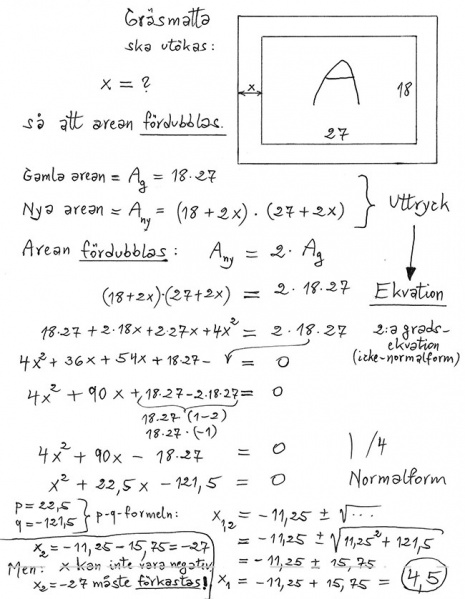 Gräsmatta
ska utökas:
x = ?
så att arean fördubblas.
x
A
18
27
Gamla arean = Ag = 18·27
Nya arean = Any = (18 + 2x) · (27 + 2x)
Uttryck
Arean fördubblas: Any = 2 · Ag
(18+2x)·(27+2x) = 2·18·27 Ekvation
18·27 + 2·18x + 2·27x + 4x² = 2·18·27 2:a grads-
ekvation
(icke-normalform)
4x² + 36x + 54x + 18·27 - = 0
4x² + 90x + 18·27 - 2·18·27 = 0
18·27 (1-2)
18·27·(-1)
4x² + 90x - 18·27 = 0 | /4
x² + 22,5x - 121,5 = 0 Normalform
p = 22,5
q = -121,5 } p-q-formeln: x1,2 = -11,25 ± √···
= -11,25 ± √11,25² + 121,5
= -11,25 ± 15,75
x1 = -11,25 + 15,75 = 4,5
x2 = -11,25 - 15,75 = -27
Men: x kan inte vara negativ
x2 = -27 måste förkastas!